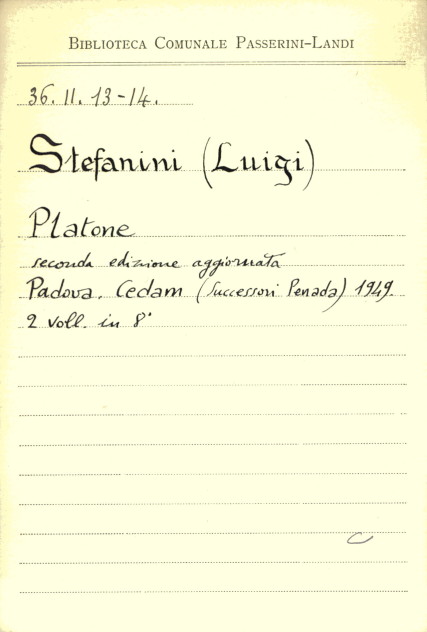 BIBLIOTECA COMUNALE PASSERINI-LANDI
36. II. 13-14.
Stefanini (Luigi)
Platone
seconda edizione aggiornata
Padova. Cedam (Successori Penada) 1949.
2 voll. in 8°
C